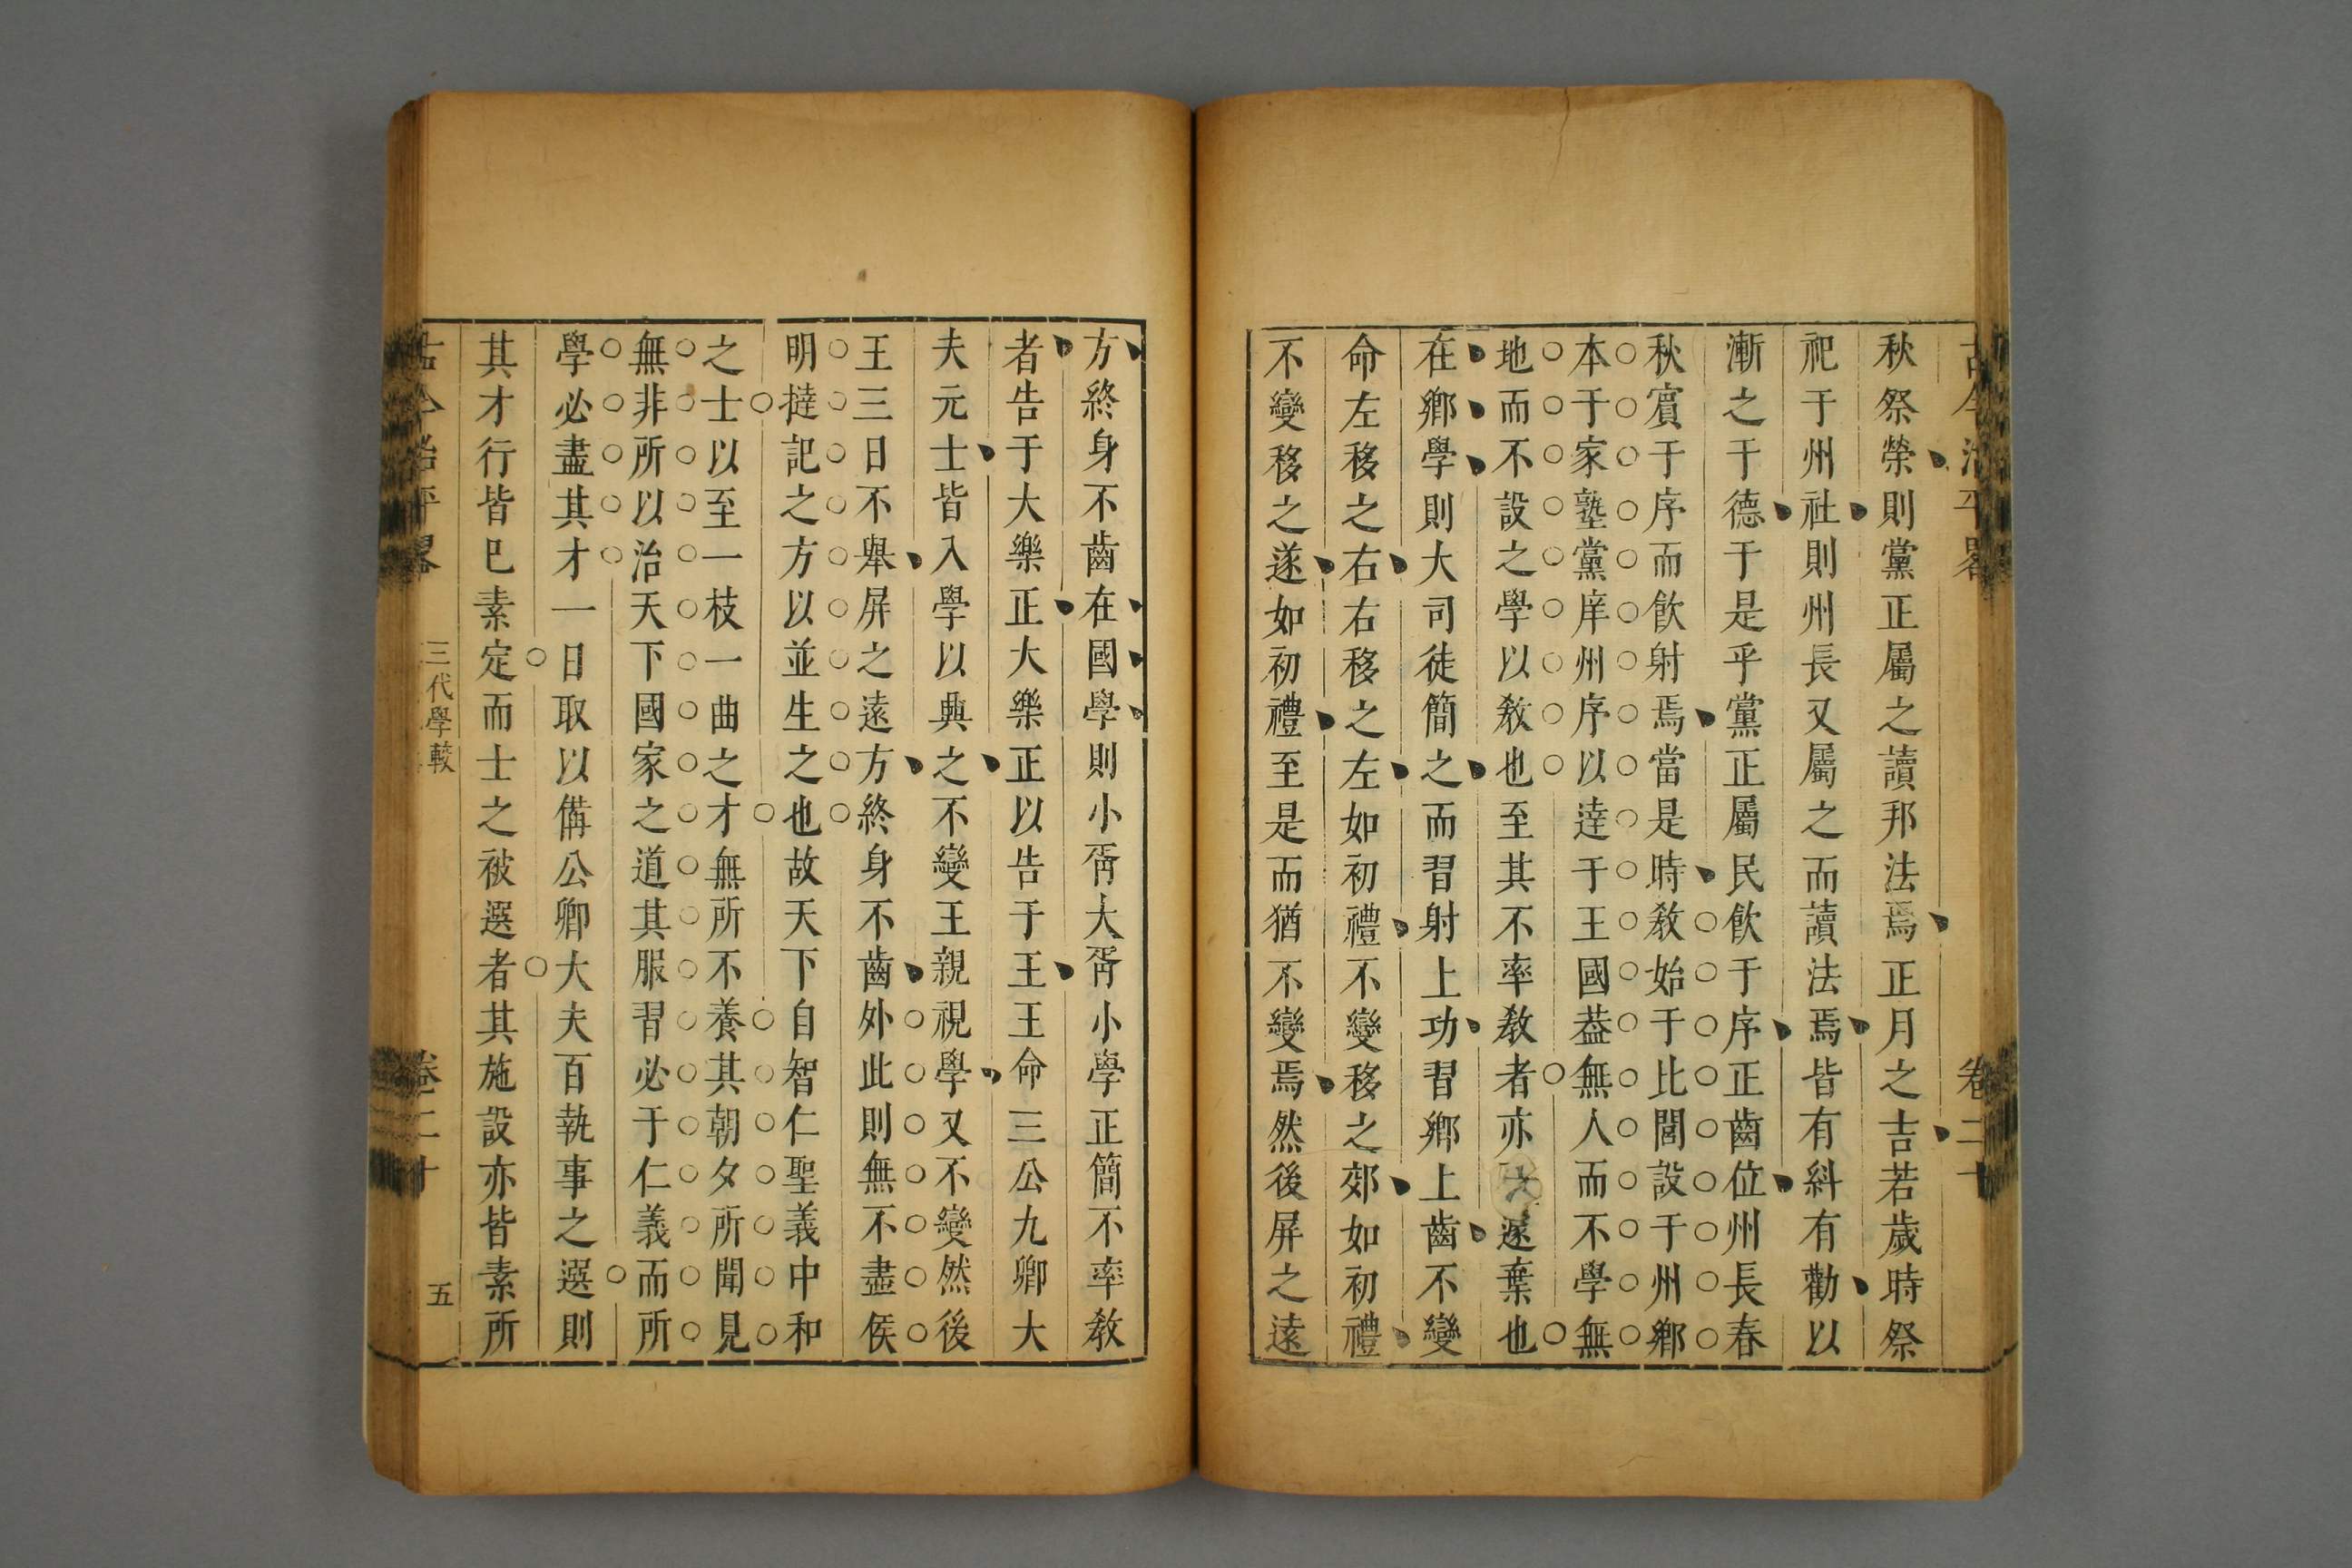 古今治平畧
卷二十
秋祭禜則黨正屬之讀邦法焉正月之吉若歲時祭
祀于州社則州長又屬之而讀法焉皆有糾有勸以
漸之于德于是乎黨正屬民飲于序正齒位州長春
秋賓于序而飲射焉當是時教始于比閭設于州鄉
本于家塾黨庠州序以逹于王國葢無人而不學無
地而不設之學以教也至其不率教者亦遂棄也
在鄉學則大司徒簡之而習射上功習鄉上齒不變
命左移之右右移之左如初禮不變移之郊如初禮
不變移之遂如初禮至是而猶不變焉然後屏之遠
方終身不齒在國學則小胥大胥小學正簡不率教
者告于大樂正大樂正以告于王王命三公九卿大
夫元士皆入學以典之不變王親視學又不變然後
王三日不舉屏之遠方終身不齒外此則無不盡矦
明撻記之方以並生之也故天下自智仁聖義中和
之士以至一枝一曲之才無所不養其朝夕所聞見
無非所以治天下國家之道其服習必于仁義而所
學必盡其才一日取以備公卿大夫百執事之選則
其才行皆已素定而士之被選者其施設亦皆素所
古今治平畧
三代學較
卷二十
五